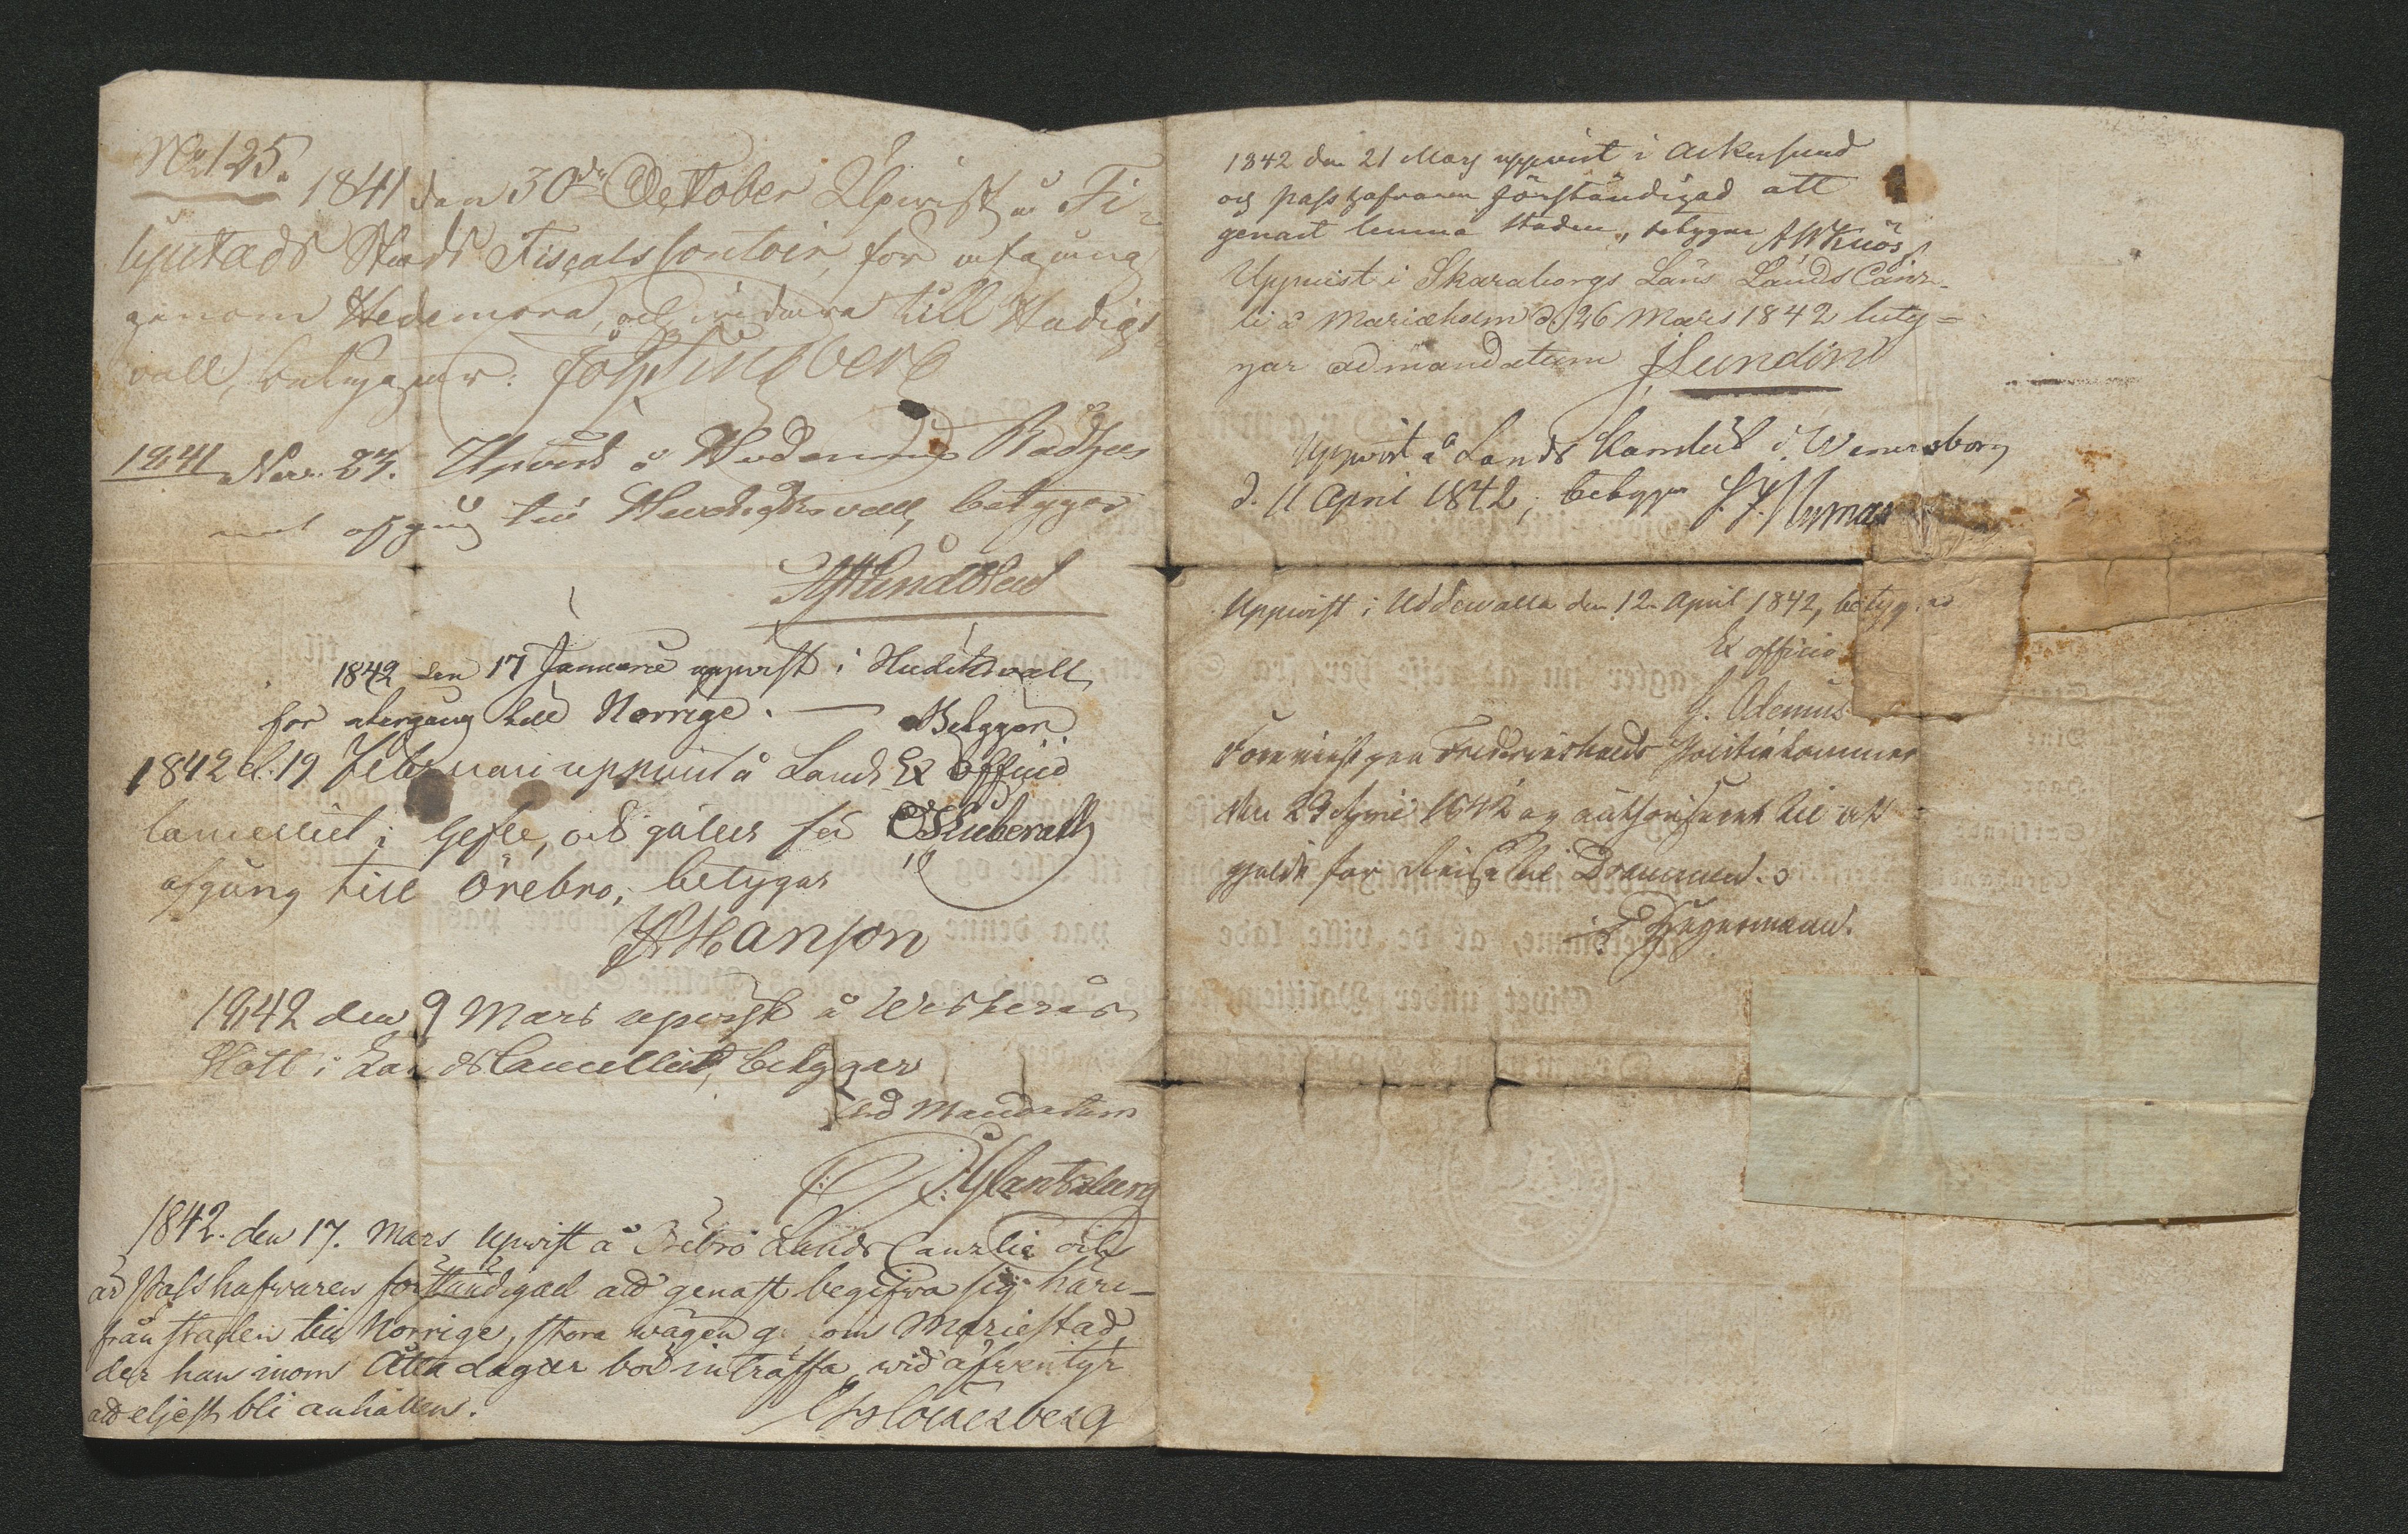 No 125.
1841 den 30de October Upvist å Fi-
Stads Fiscals Contoir, for afgång
genom Hedemora, och vidare till Hudigs
vall, betygar:
1841 Nov. 23. Upvist å Hedemora Rådhus
med afgång till Hudigsvall, betygar
1842 den 17 Januarii uppvist i Hudiksvall
for återgång till Norrige. — Betygar
1842 d. 19 Februari uppvist å Lands Ex officio
Cancelliet i Gefle, och gäller för
afgång till Örebro, betygar
Hanson
1842 den 9 Mars upvist å Westerås
Slott i Lands Cancelliet, betygar
ad Mandatum
Glantzberg
1842. den 17. Mars Upvist å Örebro Lands Canzlie och
är Passhafvaren förständigad att genast begifva sig häri-
från staden till Norrige, stora vägen genom Mariestad,
der han inom Åtta dagar bör inträffa, wid äfventyr
att eljest bli anhållen.
1842 den 21 Mars uppvist i Askersund
och passhafvaren förständigad att
genast lemna staden, betygar A W Knös
Uppvist i Skaraborgs Läns Lands Canz-
li å Marieholm d. 26 Mars 1842 bety=
gar ad mandatum J Lundin
Uppvist å Lands Kansliet i Wenersborg
d. 11 April 1842, betygar
Uppvist i Uddewalla den 12 April 1842, betygar
Ex officio
Foreviist paa Frederikshalds Politiekammer
den 29 April 1842 og authoriseret til at
gjelde for Reise til Drammen.
Hegermann.